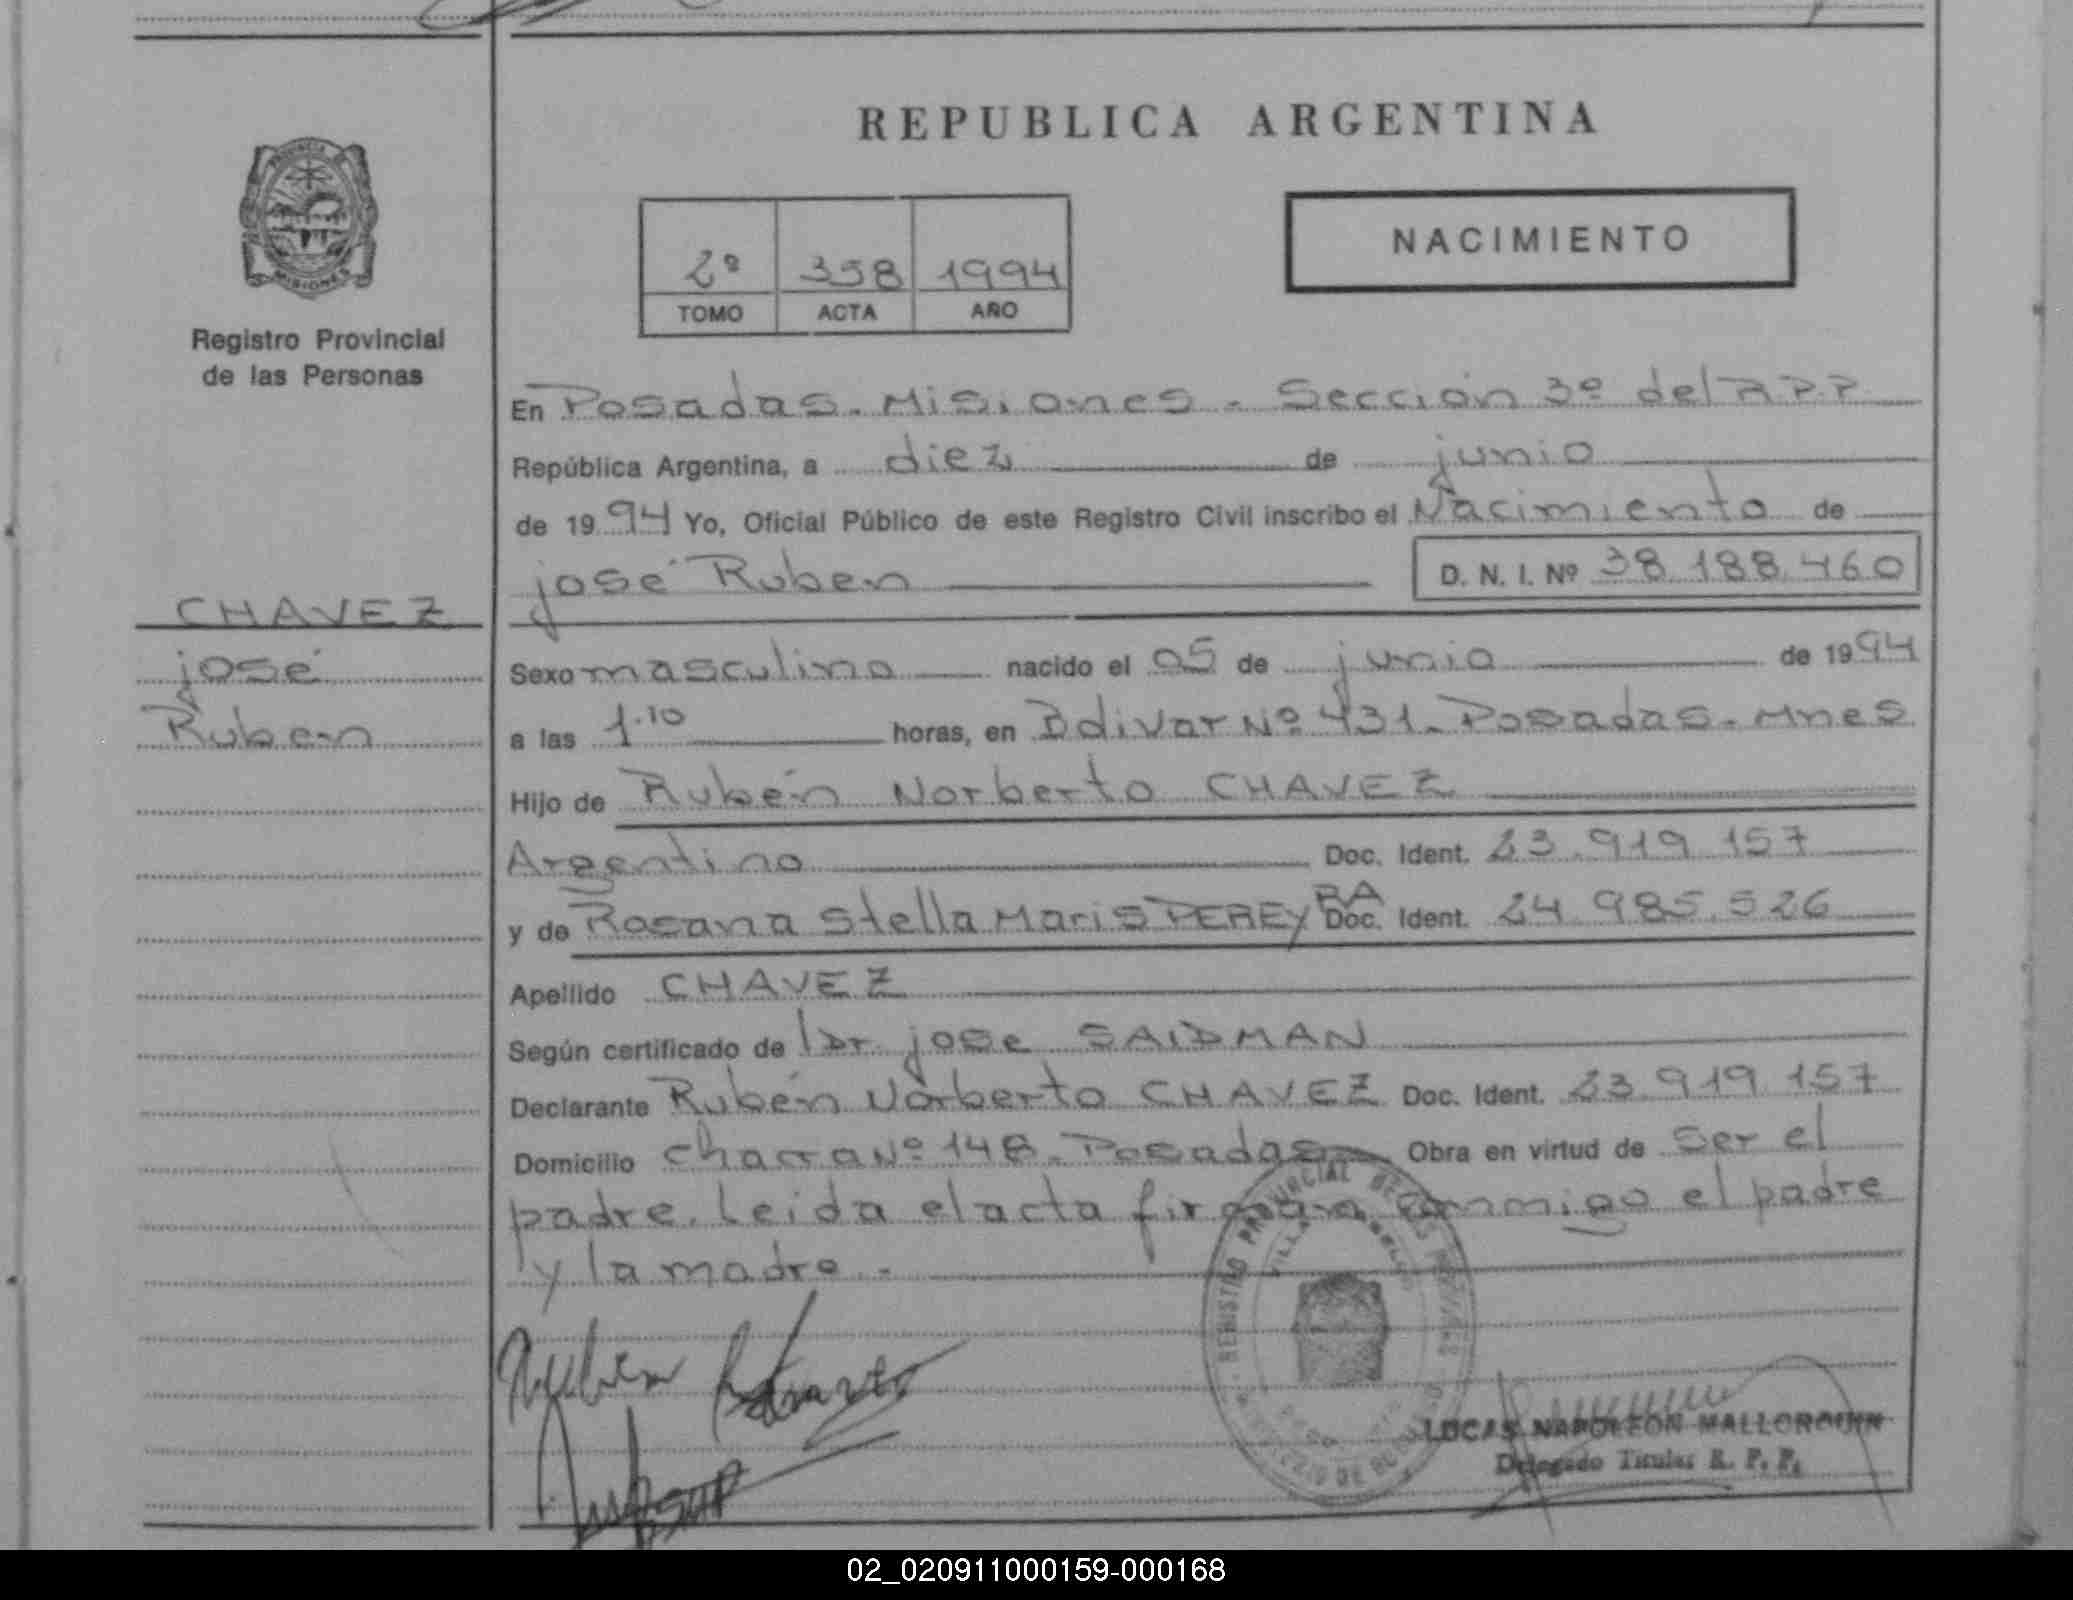 REPUBLICA ARGENTINA
PROVINCIA DE MISIONES
Registro Provincial
de las Personas
2º 358 1994
TOMO ACTA AÑO
NACIMIENTO
En Posadas - Misiones - Sección 3º del R.P.P.
República Argentina, a diez de junio
de 1994 Yo, Oficial Público de este Registro Civil inscribo el Nacimiento de
josé Ruben D. N. I. Nº 38.188.460
CHAVEZ
josé
Ruben
Sexo masculino nacido el 05 de junio de 1994
a las 1.10 horas, en Bolivar Nº 431 - Posadas - Mnes
Hijo de Rubén Norberto CHAVEZ
Argentino Doc. Ident. 23.919.157
y de Rosana Stella Maris PEREYRA Doc. Ident. 24.985.526
Apellido CHAVEZ
Según certificado de l Dr. jose SAIDMAN
Declarante Rubén Norberto CHAVEZ Doc. Ident. 23.919.157
Domicilio Chacra Nº 148 - Posadas Obra en virtud de ser el
padre. Leida el acta firman conmigo el padre
y la madre.-
REGISTRO PROVINCIAL DE LAS PERSONAS
VILLA
LUCAS NAPOLEON MALLORQUIN
Delegado Titular R. P. P.
02_020911000159-000168